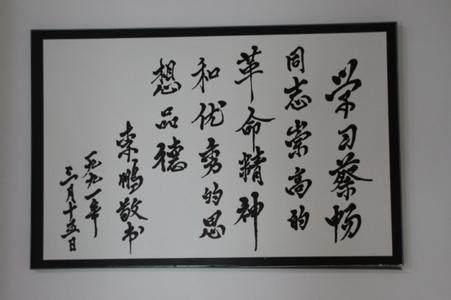 学习蔡畅
同志崇高的
革命精神
和优秀的思
想品德
鹏敬书
一九九一年
三月十五日